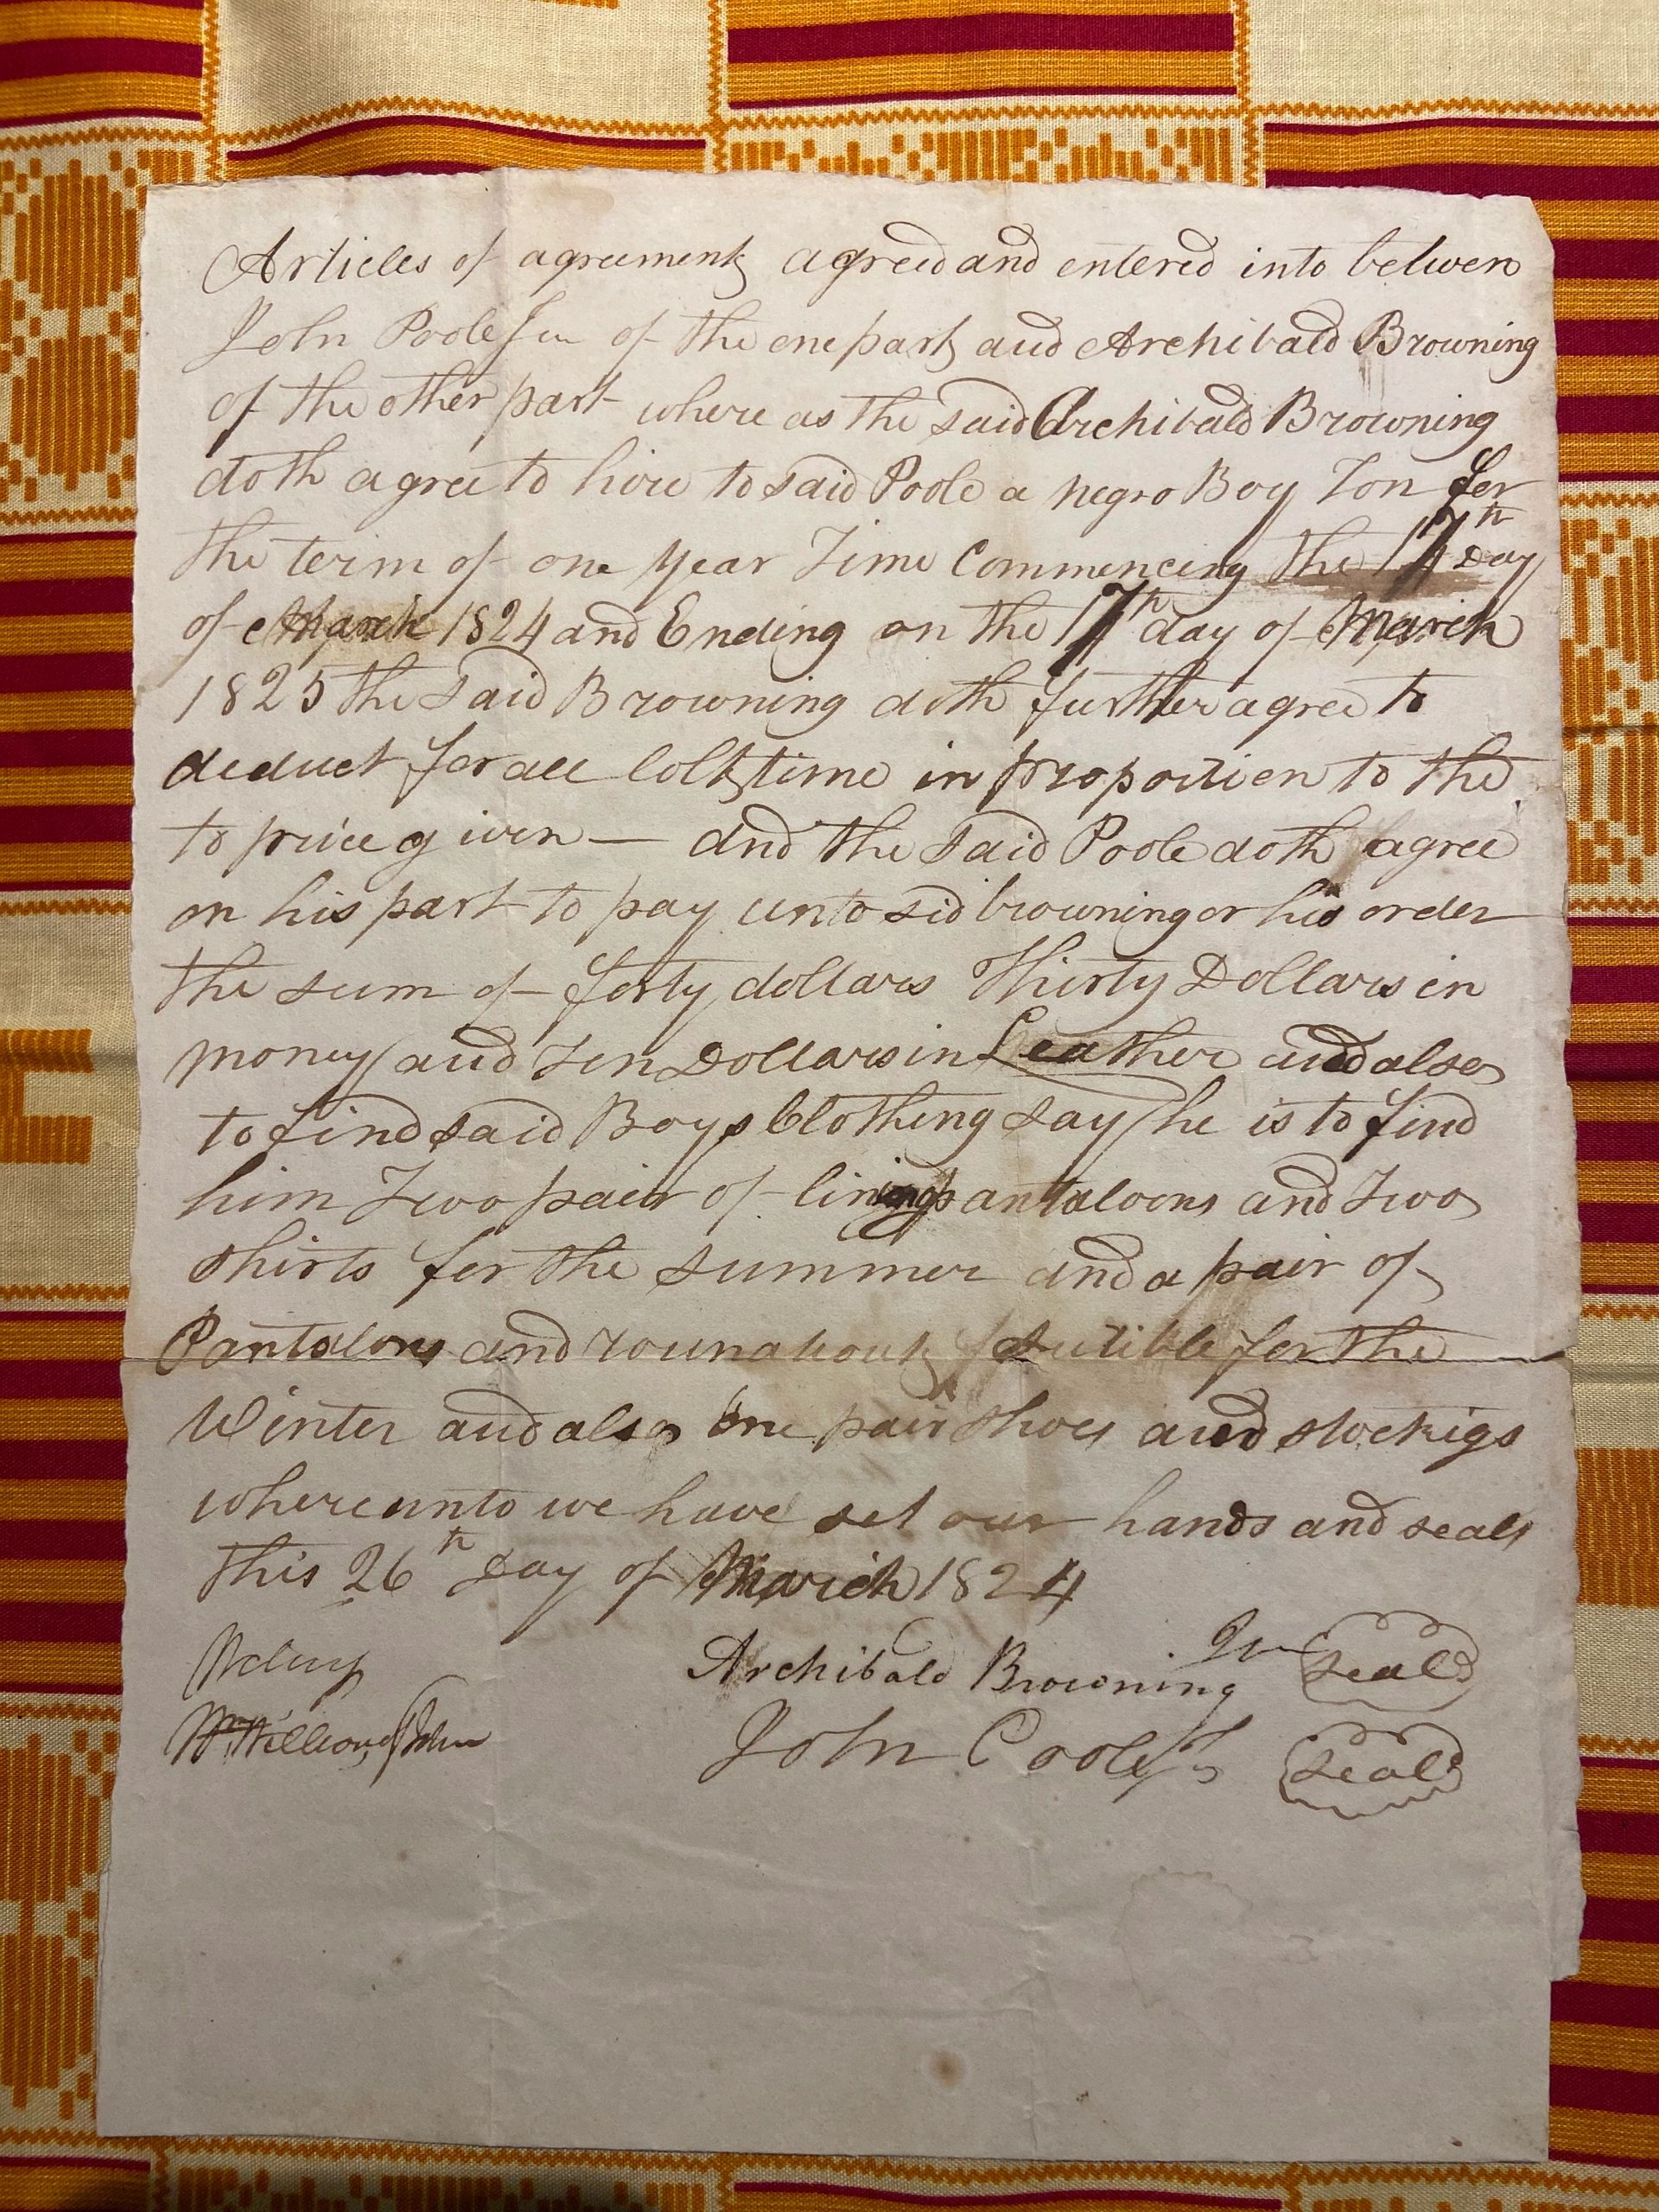 Articles of agreement agreed and entered into between
John Poole Jun of the one part and Archibald Browning
of the other part where as the said Archibald Browning
doth agree to hire to said Poole a negro Boy Ton for
the term of one year Time Commencing the 17th Day
of March 1824 and Ending on the 17th day of March
1825 the said Browning doth further agree to
deduct for all lost time in proportion to the
to price given — and the said Poole doth agree
on his part to pay unto sid browning or his order
the sum of forty dollars Thirty Dollars in
money and Ten Dollars in Leather and also
to find said Boys Clothing say he is to find
him Two pair of pantaloons and Two
shirts for the summer and a pair of
Pantaloons and roundabout sutible for the
Winter and also one pair shoes and stockigs
whereunto we have set our hands and seals
this 26th Day of March 1824
Archibald Browning Jn seal
Wm John Poole Jr seal